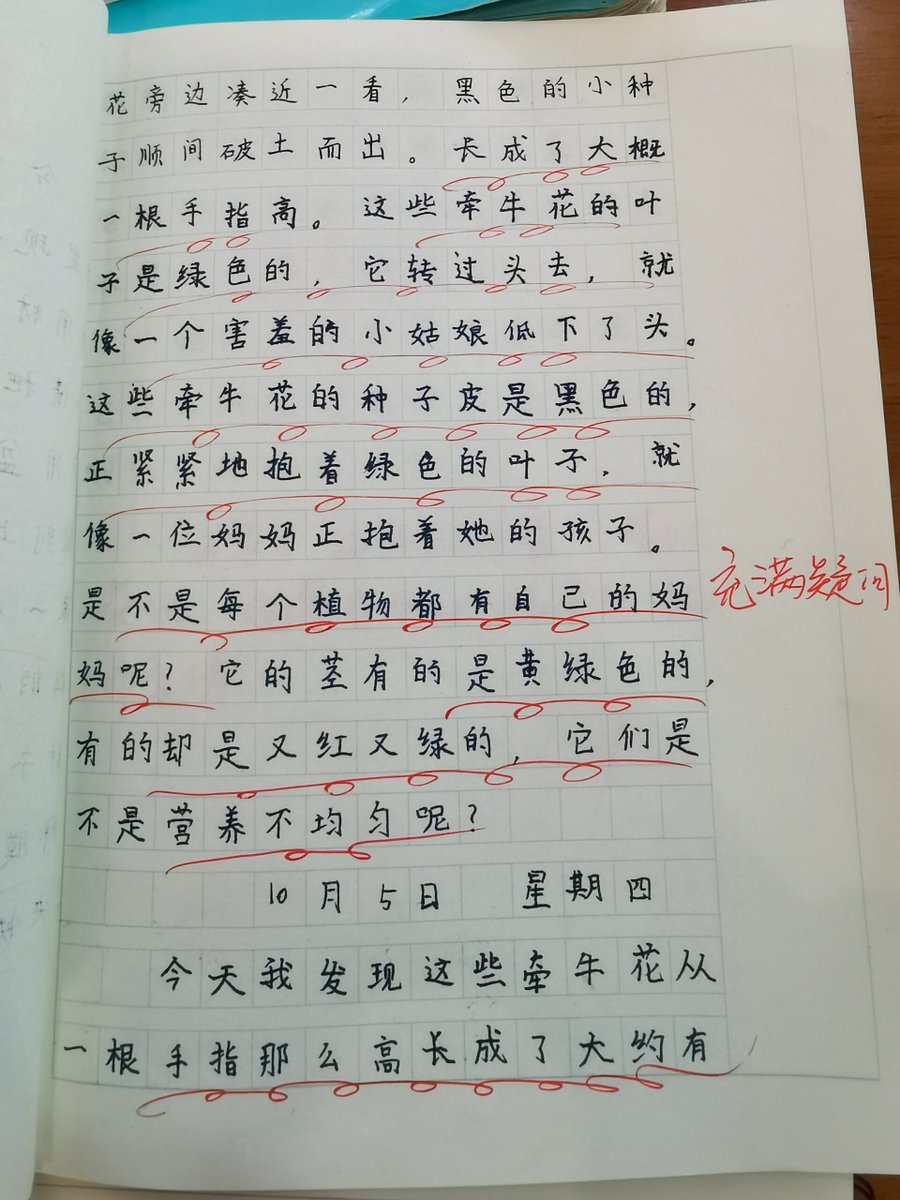 花旁边凑近一看，黑色的小种
子顺间破土而出。长成了大概
一根手指高。这些牵牛花的叶
子是绿色的，它转过头去，就
像一个害羞的小姑娘低下了头。
这些牵牛花的种子皮是黑色的，
正紧紧地抱着绿色的叶子，就
像一位妈妈正抱着她的孩子。
是不是每个植物都有自己的妈
充满疑问
妈呢？它的茎有的是黄绿色的，
有的却是又红又绿的，它们是
不是营养不均匀呢？
10月5日 星期四
今天我发现这些牵牛花从
一根手指那么高长成了大约有